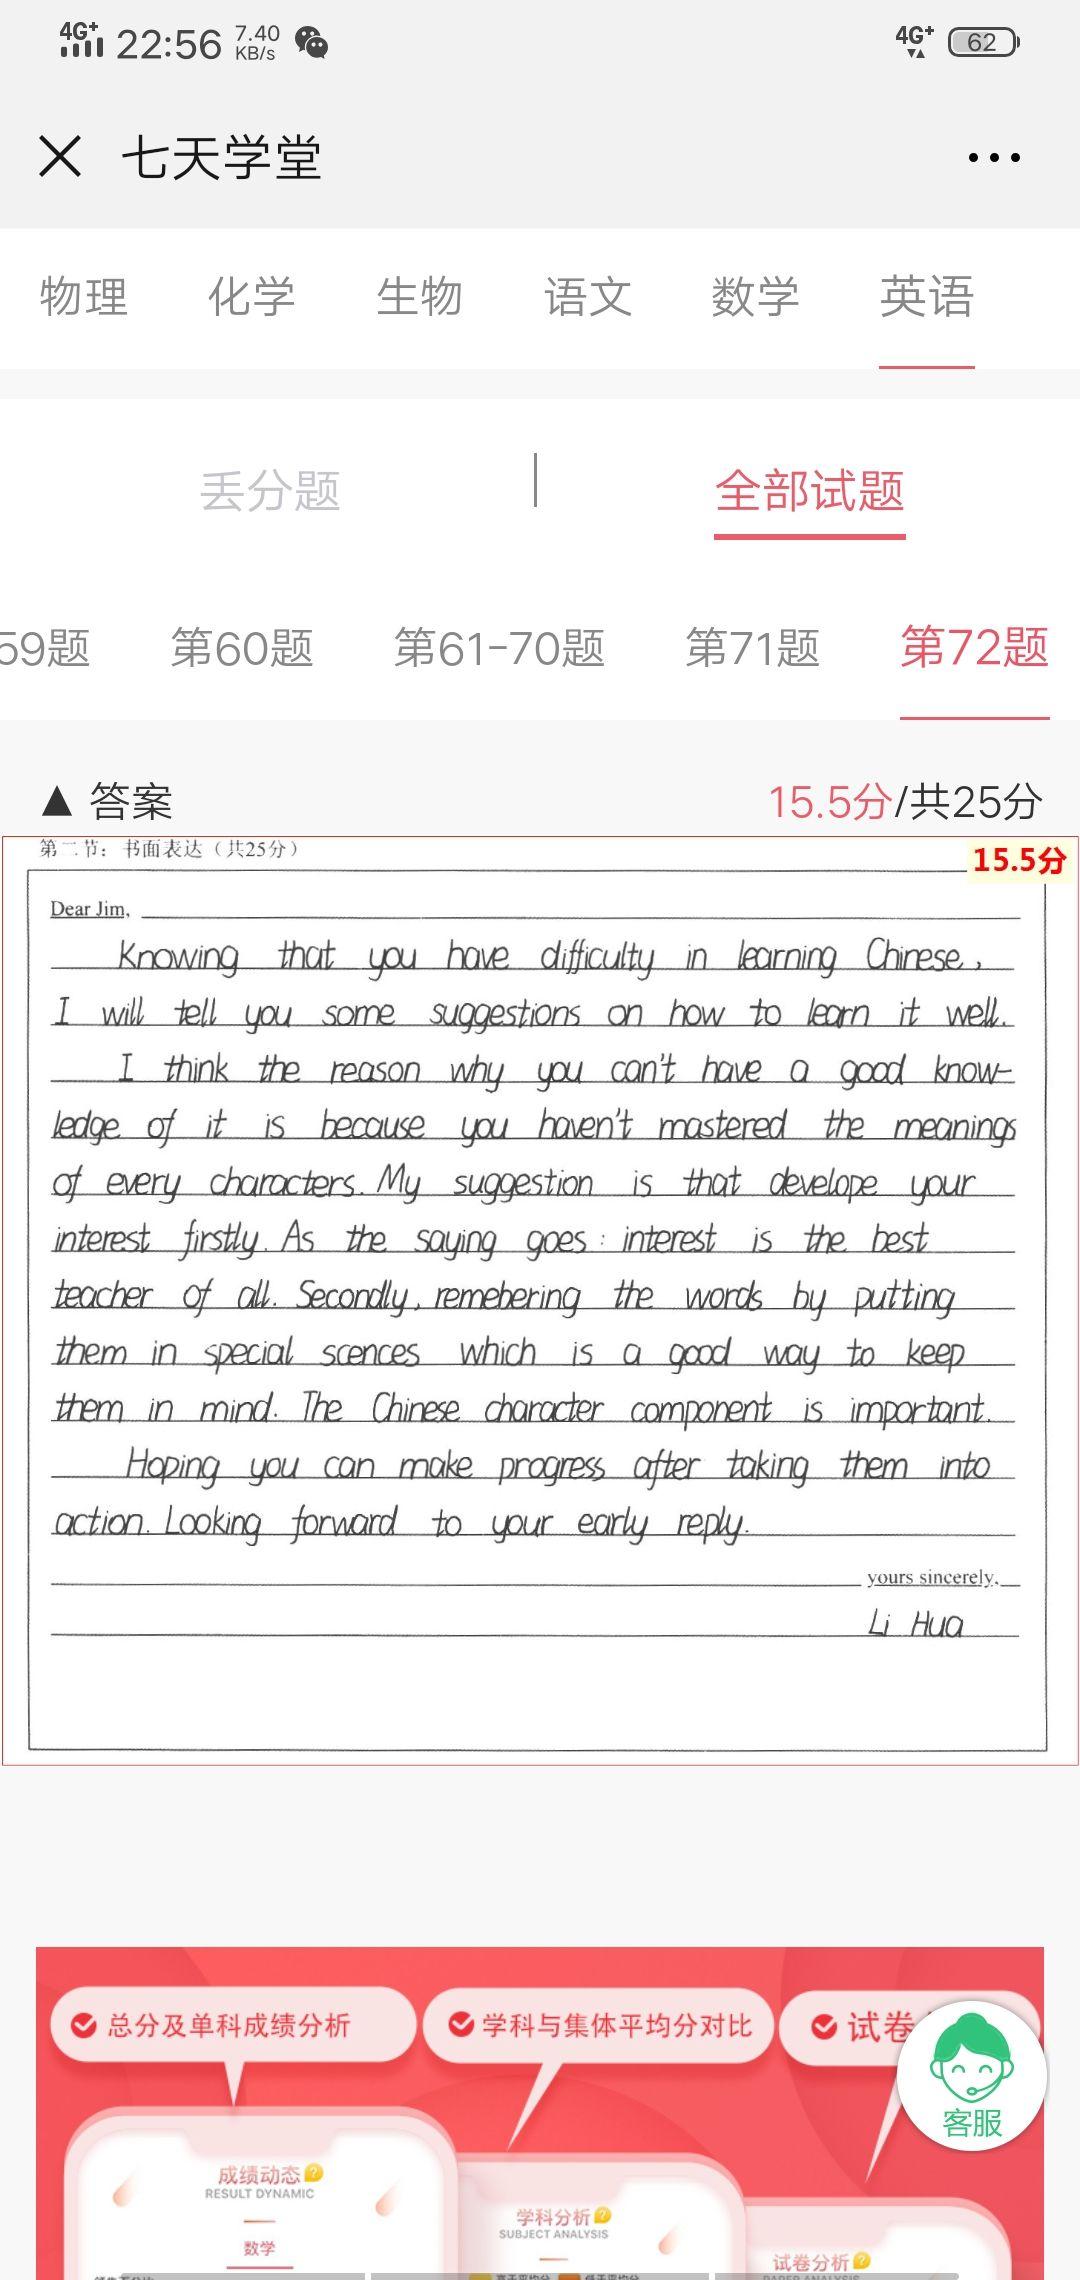 4G+ 22:56 7.40 KB/s 4G+ 62
七天学堂
物理 化学 生物 语文 数学 英语
丢分题 全部试题
59题 第60题 第61-70题 第71题 第72题
▲ 答案 15.5分/共25分
第二节：书面表达（共25分）
15.5分
Dear Jim,
Knowing that you have difficulty in learning Chinese,
I will tell you some suggestions on how to learn it well.
I think the reason why you can't have a good know-
ledge of it is because you haven't mastered the meanings
of every characters. My suggestion is that develope your
interest firstly. As the saying goes: interest is the best
teacher of all. Secondly, remehering the words by putting
them in special scences which is a good way to keep
them in mind. The Chinese character component is important.
Hoping you can make progress after taking them into
action. Looking forward to your early reply.
yours sincerely,
Li Hua
总分及单科成绩分析 学科与集体平均分对比 试卷
客服
成绩动态
RESULT DYNAMIC
数学
学科分析
SUBJECT ANALYSIS
试卷分析